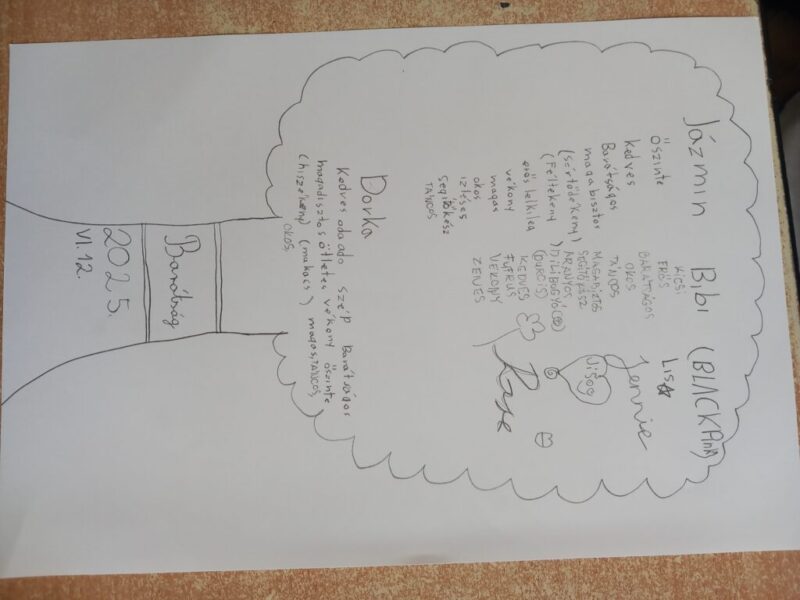 Jázmin
Őszinte
kedves
Barátságos
magabisztos
(Sértődékeny)
(Féltékeny)
erős lelkileg
vékony
magas
okos
ízléses
Segítőkész
TÁNCOS
Bibi (BLACKPInk)
KICSI
ERŐS
BARÁTSÁGOS
OKOS
TÁNCOS
MAGABIZTOS
SEGÍTŐKÉSZ
ARANYOS
DILIBOGYÓ
(DURCIS)
KEDVES
VÉKONY
ZENÉS
LISA
Jennie
Jisoo
Rose
Dorka
Kedves odaadó szép Barátságos
magabisztos ötletes vékony őszinte
(hiszékeny) (makacs) magas, TÁNCOS
OKOS
Barátság
2025.
VI.12.